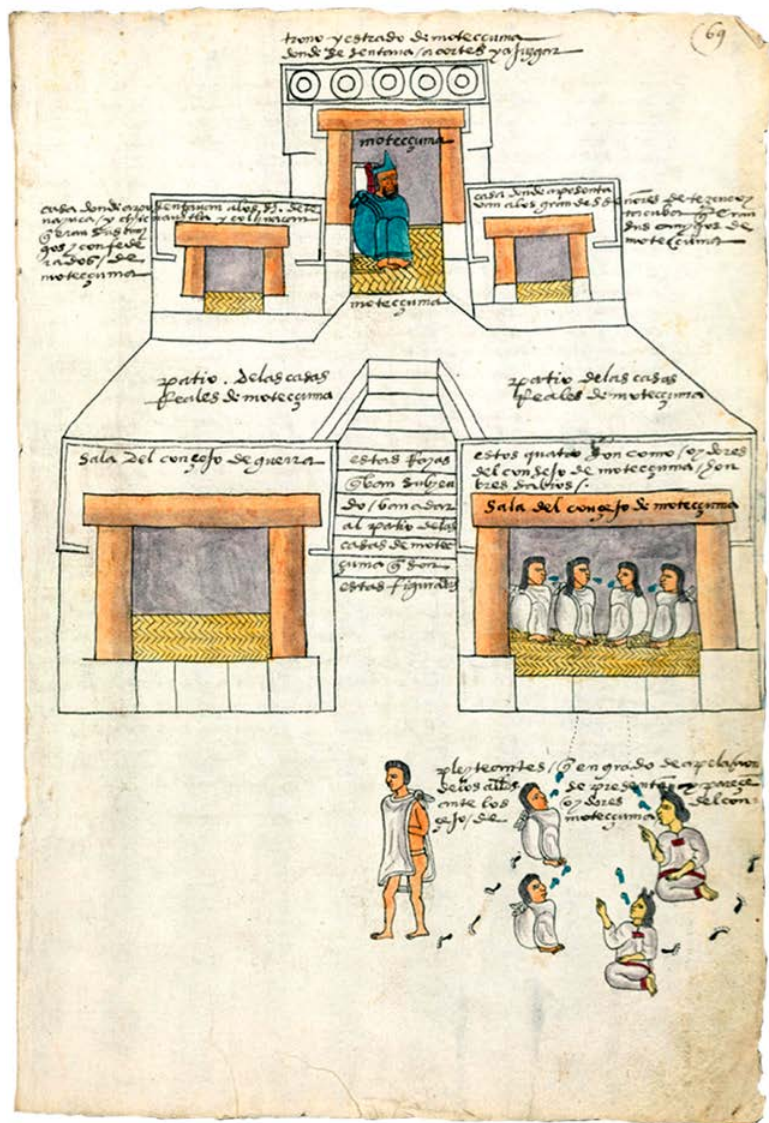 69
trono y estrado de moteccuma
donde se sentava a cortes y a juzgar
moteccuma
casa donde aposentavan a los s. de te
nayuca / y chicnauhtla y colhuacan
q eran sus ami
gos / y confede
rados / de
moteccuma
casa donde aposenta
van a los grandes se
ñores de tezcuco y
tacuba q eran
sus amigos de
moteccuma
moteccuma
patio. de las casas
reales de moteccuma
patio de las casas
reales de moteccuma
sala del consejo de guerra
estas rayas
q van subien
do / van a dar
al patio de las
casas de motec
cuma q son
estas figuradas
estos quatro son como / oydores
del consejo de moteccuma / hon
bres sabios /.
sala del consejo de moteccuma
pleyteantes / q en grado de apelacion
de los alcaldes se presentan y parecen
ante los oydores del con
sejo / de moteccuma